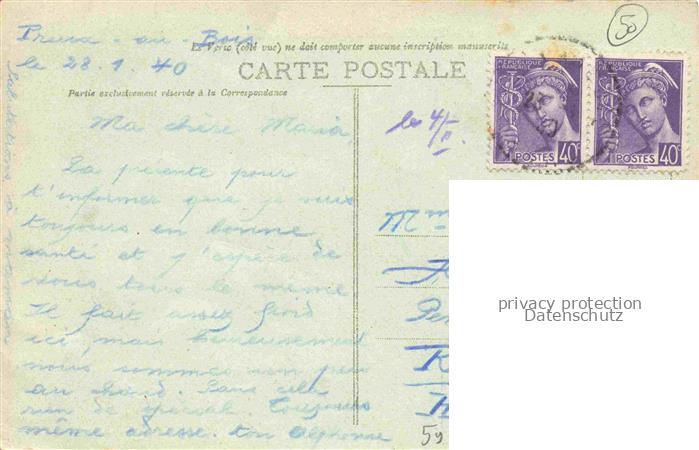 au - Bois
le 28.1.40
50
Le Verso (côté vue) ne doit comporter aucune inscription manuscrite
CARTE POSTALE
Partie exclusivement réservée à la Correspondance
RÉPUBLIQUE FRANÇAISE
POSTES 40c
RÉPUBLIQUE FRANÇAISE
POSTES 40c
Ma chère Maria,
La présente pour
t'informer que je suis
toujours en bonne
santé et j'espère de
vous tous le même
Il fait assez froid
ici, mais heureusement
nous sommes un peu
au chaud. Sans cela
rien de spécial. Toujours
même adresse. ton Alphonse
le 4/II.
Mme
59
privacy protection
Datenschutz